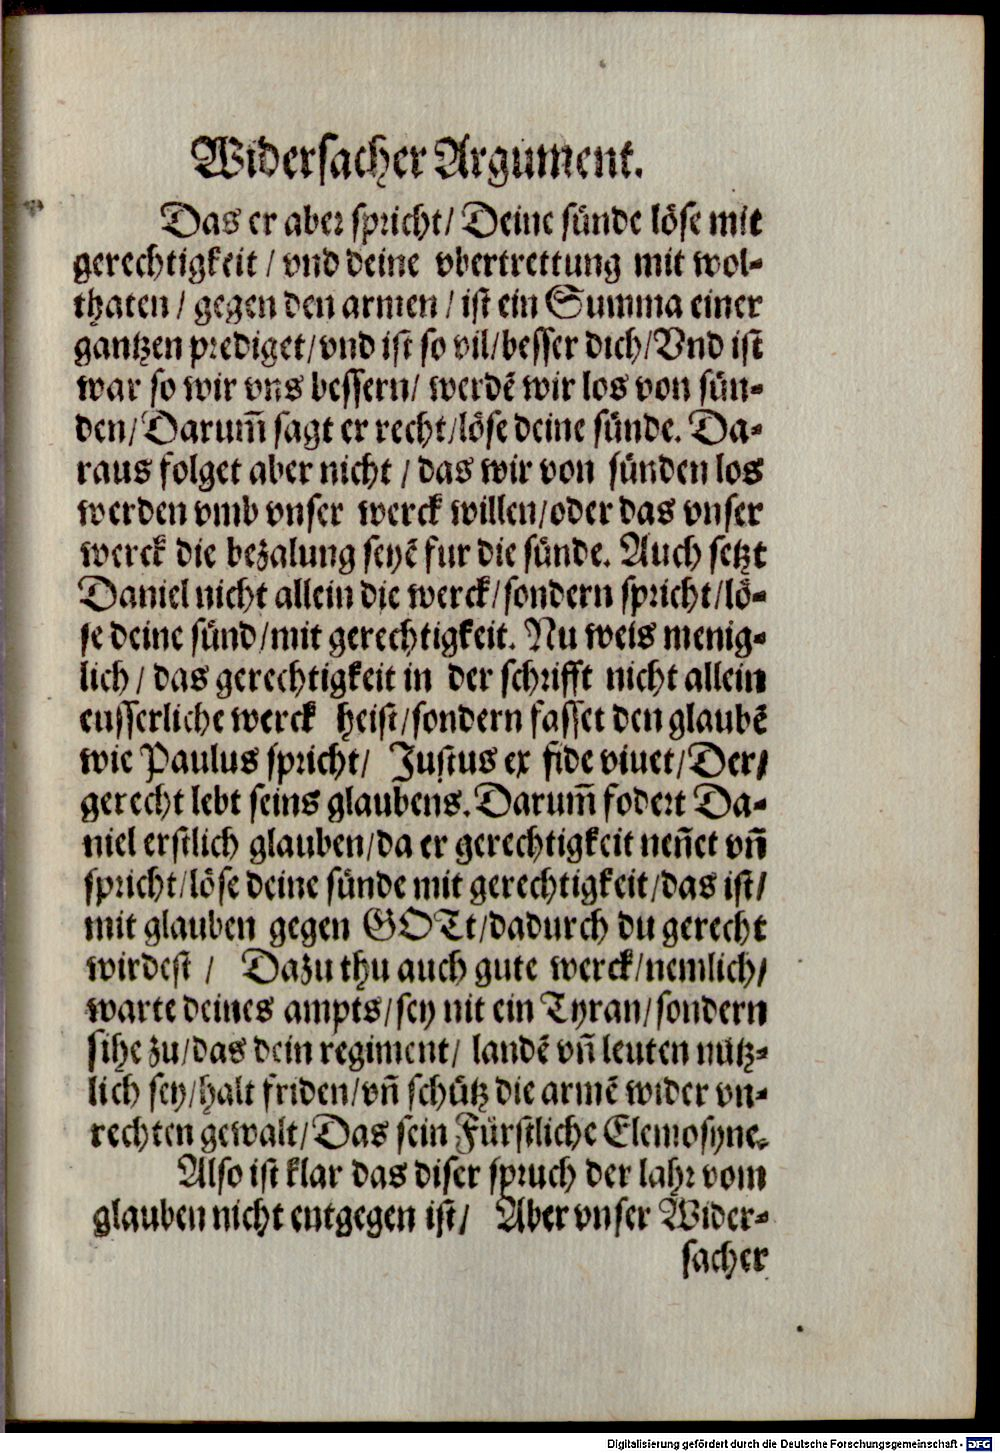 Widersacher Argument.
Das er aber spricht/ Deine sünde löse mit
gerechtigkeit / vnd deine vbertrettung mit wol-
thaten / gegen den armen / ist ein Summa einer
gantzen prediget/vnd ist so vil/besser dich/Vnd ist
war so wir vns bessern/ werdē wir los von sün-
den/Darum̄ sagt er recht/löse deine sünde. Da-
raus folget aber nicht / das wir von sünden los
werden vmb vnser werck willen/oder das vnser
werck die bezalung seyē fur die sünde. Auch setzt
Daniel nicht allein die werck/sondern spricht/lö-
se deine sünd/mit gerechtigkeit. Nu weis menig-
lich / das gerechtigkeit in der schrifft nicht allein
eusserliche werck heist/sondern fasset den glaubē
wie Paulus spricht/ Justus ex fide viuet/Der/
gerecht lebt seins glaubens. Darum̄ fodert Da-
niel erstlich glauben/da er gerechtigkeit nen̄et vn̄
spricht/löse deine sünde mit gerechtigkeit/das ist/
mit glauben gegen GOTt/dadurch du gerecht
wirdest / Dazu thu auch gute werck/nemlich/
warte deines ampts/sey nit ein Tyran/sondern
sihe zu/das dein regiment/ landē vn̄ leuten nütz-
lich sey/halt friden/vn̄ schütz die armē wider vn-
rechten gewalt/Das sein Fürstliche Elemosyne.
Also ist klar das diser spruch der lahr vom
glauben nicht entgegen ist/ Aber vnser Wider-
sacher
Digitalisierung gefördert durch die Deutsche Forschungsgemeinschaft - DFG